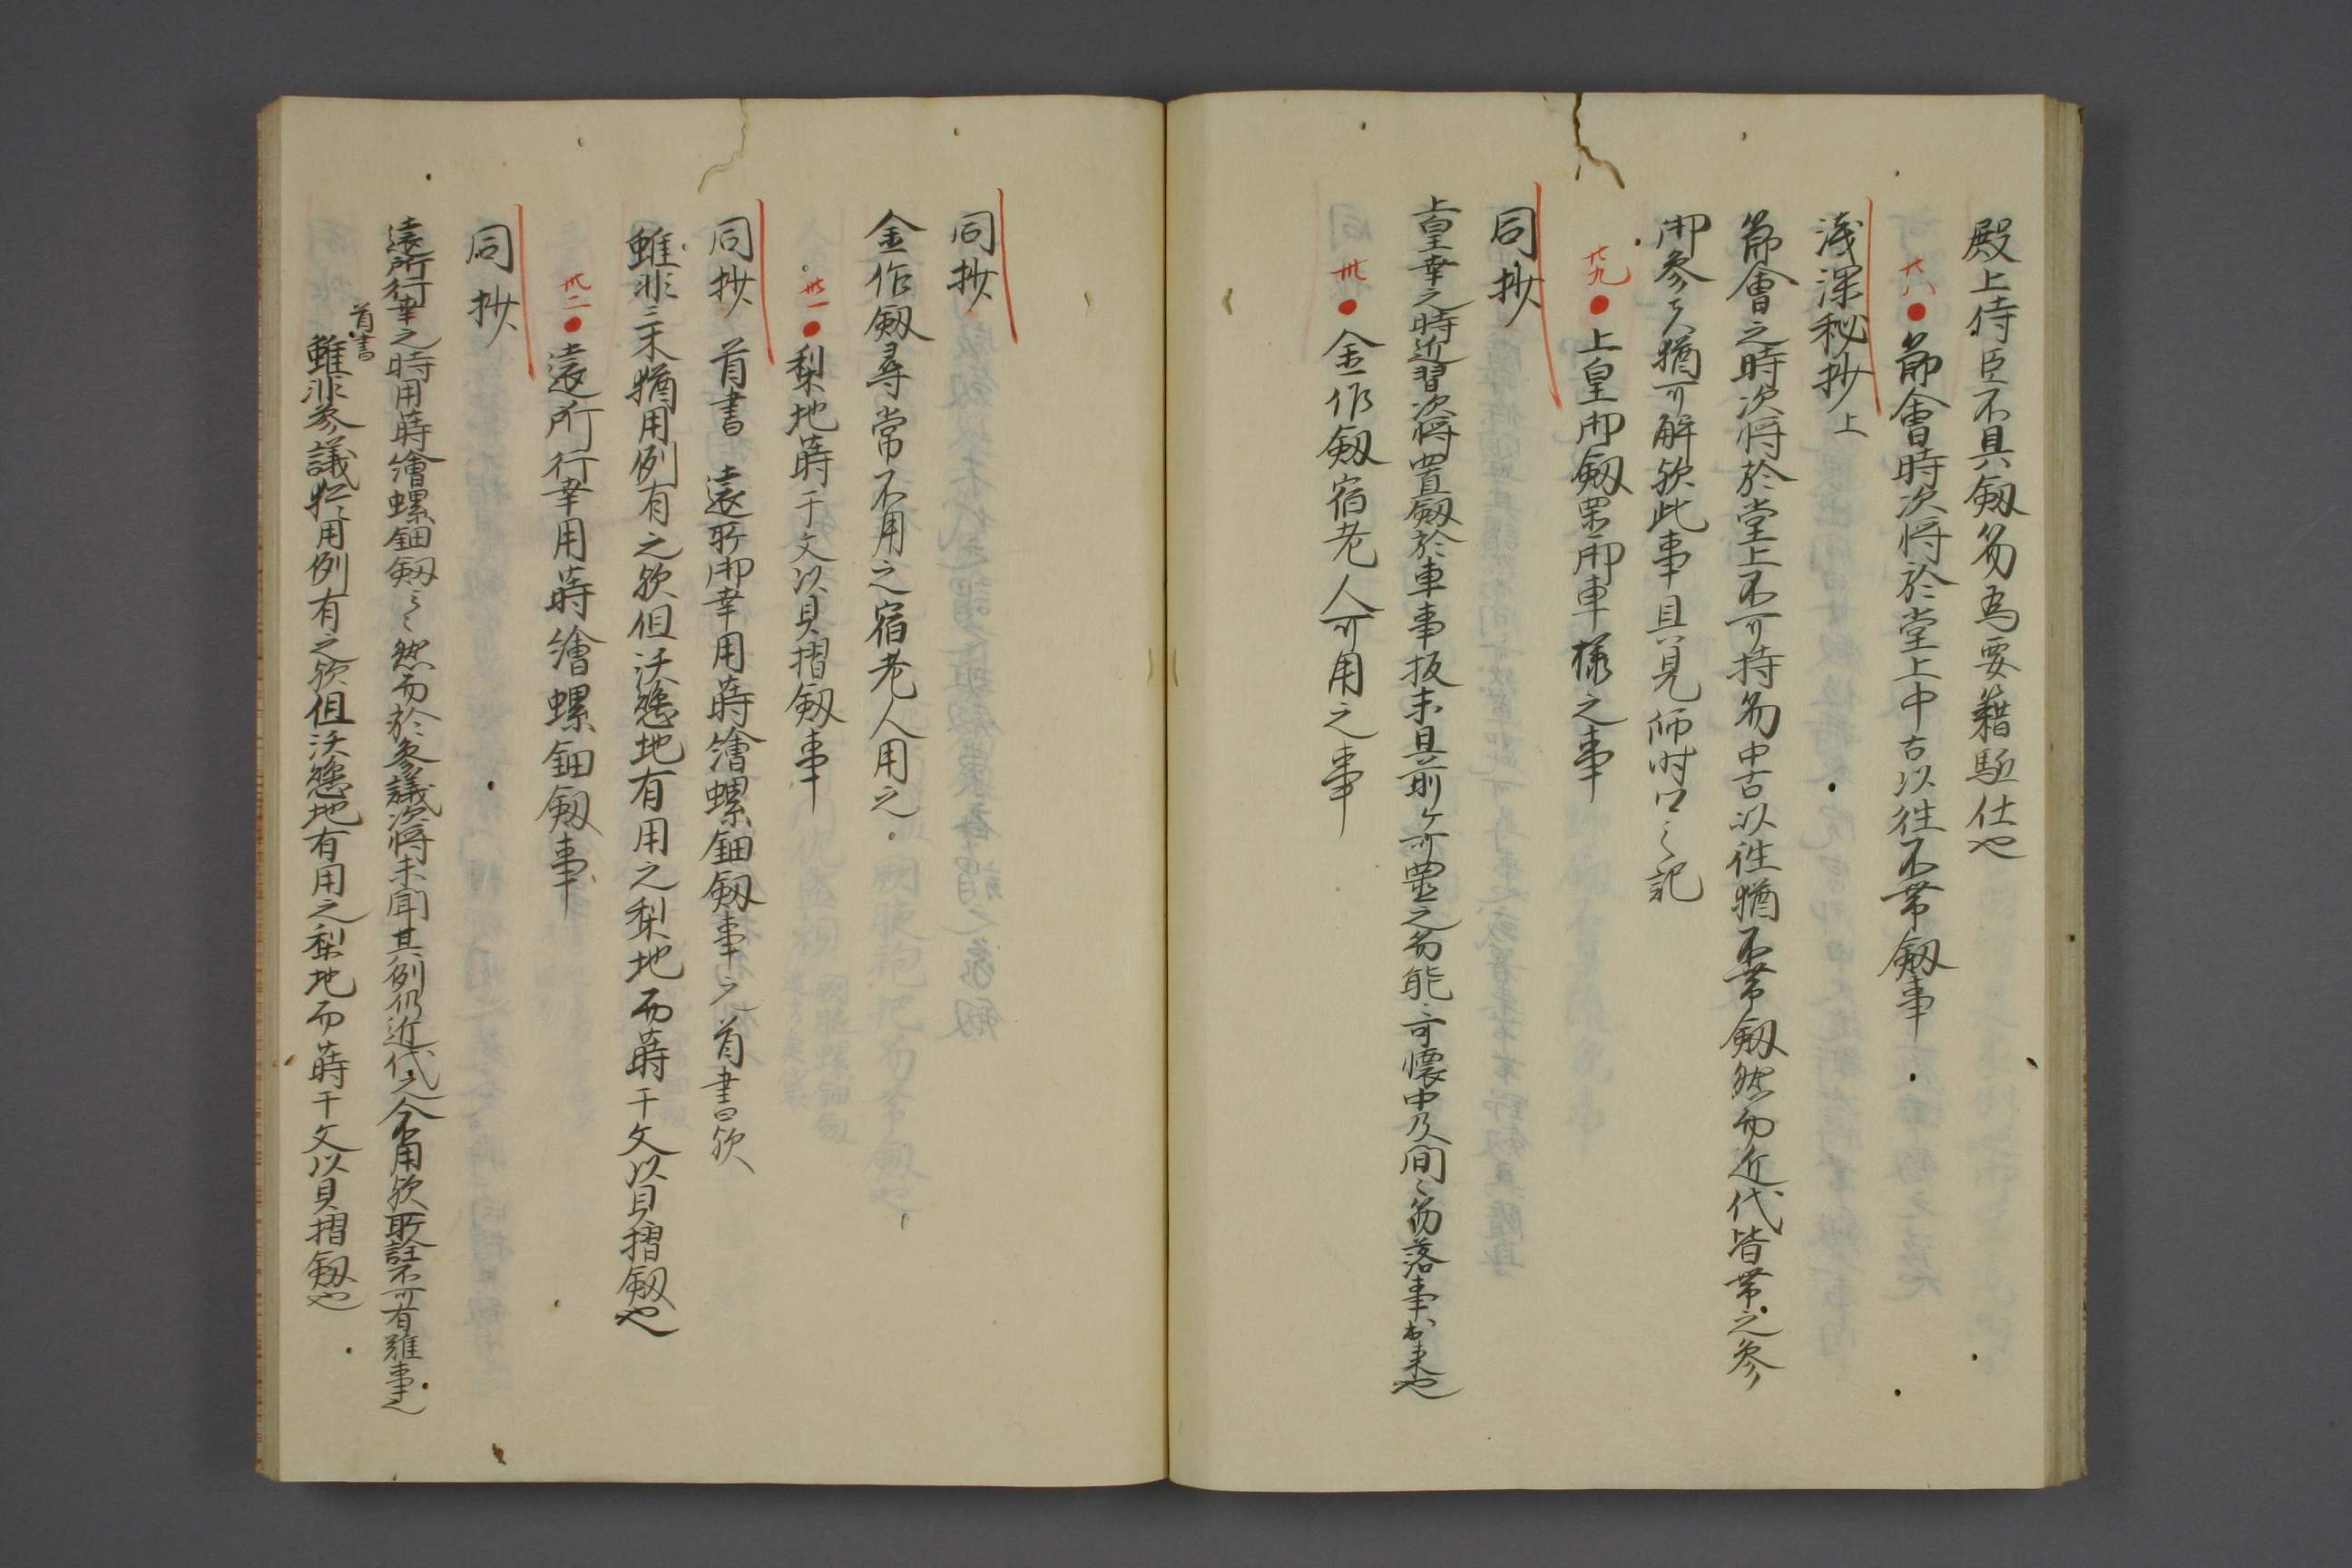 殿上侍臣不具釼笏為要藉駈仕也
廿八●節會時次將於堂上中古以往不帯釼事
淺深秘抄上
節會之時次將於堂上不可持笏中古以往猶不帯釼然而近代皆帯之参
御参之人猶可解欤此事具見師時口之記
廿九●上皇御釼置御車様之事
同抄
上皇幸之時近習次將置釼於車事扳未且前々可置之笏能々可懐中乃間々笏落事出来也
卅●金作釼宿老人可用之事
同抄
金作釼尋常不用之宿老人用之
卅一●梨地蒔千文以貝摺釼事
同抄 首書 遠所御幸用蒔繪螺鈿釼事之首書曰欤
雖非三木猶用例有之欤但沃懸地有用之梨地而蒔千文以貝摺釼也
卅二●遠所行幸用蒔繪螺鈿釼事
同抄
遠所行幸之時用蒔繪螺鈿釼云々然而於参議次將未聞其例仍近代之人不用欤所詮不可有難事之
首書
雖非参議猶用例有之欤但沃懸地有用之梨地而蒔千文以貝摺釼也